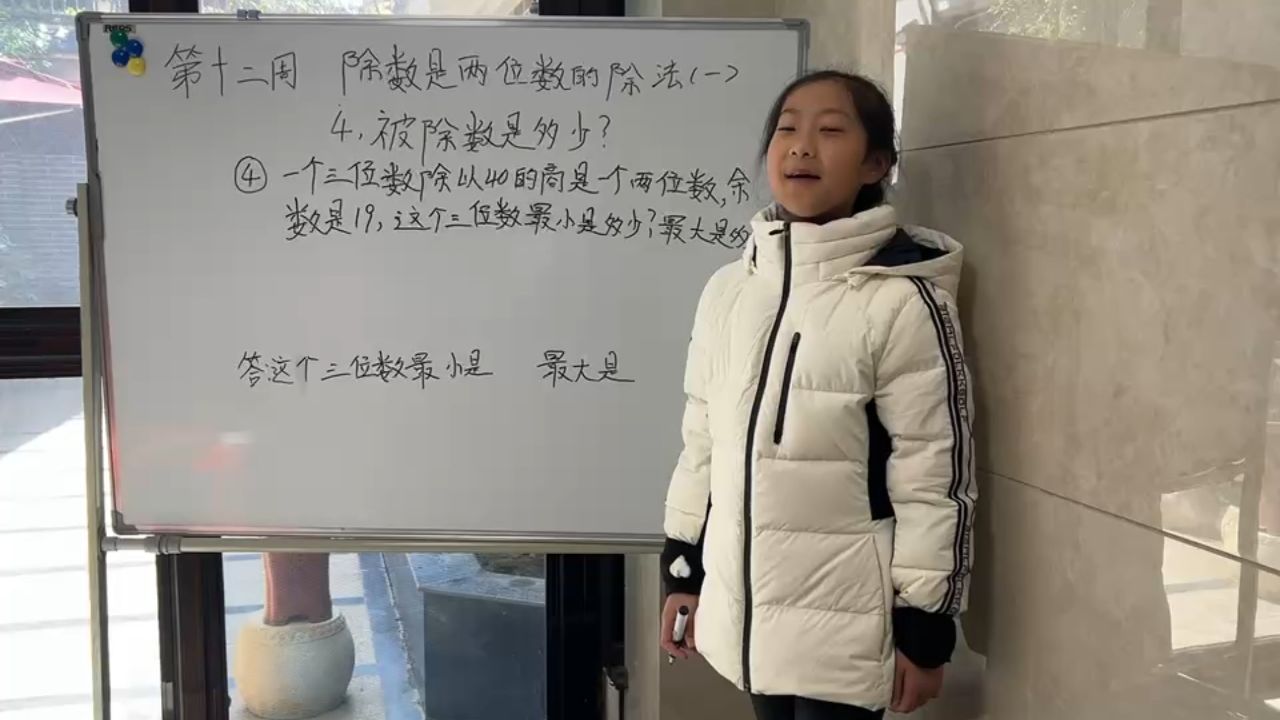 第十二周 除数是两位数的除法(一)
4,被除数是多少?
④ 一个三位数除以40的商是一个两位数,余
数是19,这个三位数最小是多少?最大是多
答:这个三位数最小是 最大是